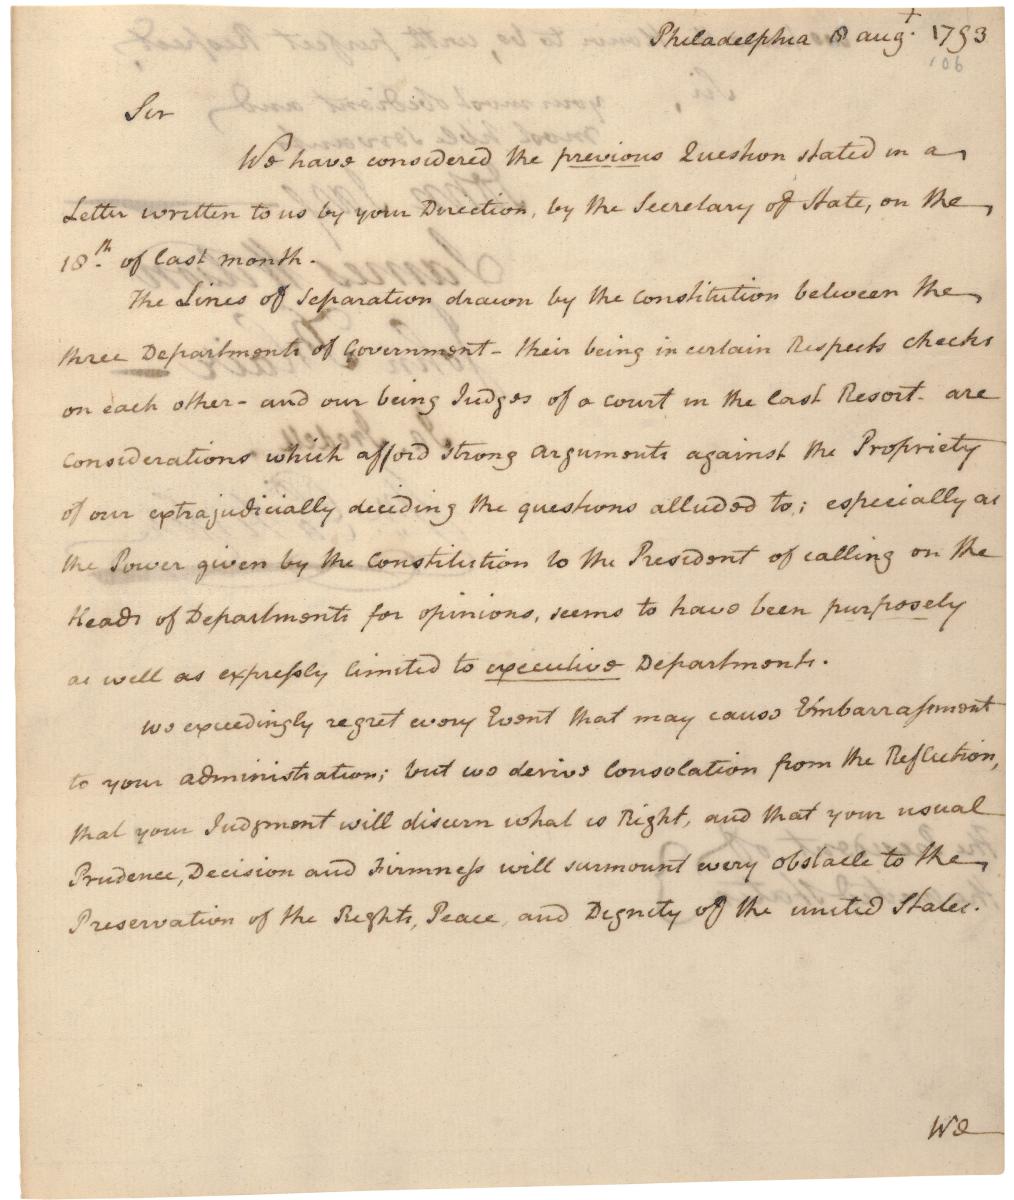 Philadelphia 8 augt. 1793
106
Sir
We have considered the previous Question stated in a
Letter written to us by your Direction, by the Secretary of State, on the
18th. of last month.
The Lines of Separation drawn by the constitution between the
three Departments of Government - their being in certain Respects checks
on each other - and our being Judges of a court in the last Resort - are
considerations which afford strong arguments against the Propriety
of our extrajudicially deciding the questions alluded to; especially as
the Power given by the Constitution to the President of calling on the
Heads of Departments for opinions, seems to have been purposely
as well as expressly limited to executive Departments.
We exceedingly regret every Event that may cause Embarrassment
to your administration; but we derive Consolation from the Reflection,
that your Judgment will discern what is Right, and that your usual
Prudence, Decision and Firmness will surmount every obstacle to the
Preservation of the Rights, Peace, and Dignity of the united States.
We